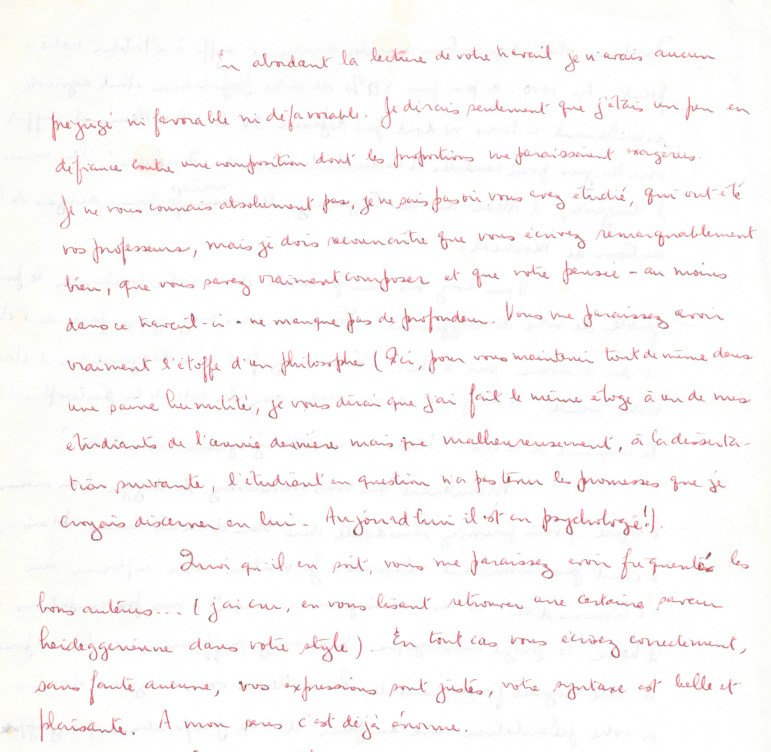 En abordant la lecture de votre travail je n'avais aucun
préjugé ni favorable ni défavorable. Je dirais seulement que j'étais un peu en
défiance contre une composition dont les proportions me paraissaient exagérées.
Je ne vous connais absolument pas, je ne sais pas où vous avez étudié, qui ont été
vos professeurs, mais je dois reconnaître que vous écrivez remarquablement
bien, que vous savez vraiment composer et que votre pensée - au moins
dans ce travail-ci - ne manque pas de profondeur. Vous me paraissez avoir
vraiment l'étoffe d'un philosophe (Ici, pour vous maintenir tout de même dans
une saine humilité, je vous dirai que j'ai fait le même éloge à un de mes
étudiants de l'année dernière mais que malheureusement, à la disserta-
tion suivante, l'étudiant en question n'a pas tenu les promesses que je
croyais discerner en lui - Aujourd'hui il est en psychologie!).
Quoi qu'il en soit, vous me paraissez avoir fréquenté les
bons auteurs... (j'ai cru, en vous lisant, retrouver une certaine saveur
heideggerienne dans votre style) En tout cas vous écrivez correctement,
sans faute aucune, vos expressions sont justes, votre syntaxe est belle et
plaisante. A mon sens c'est déjà énorme.